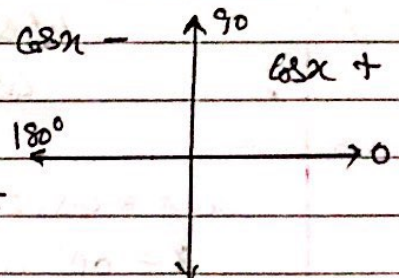 cosx -
90
cosx +
180°
0